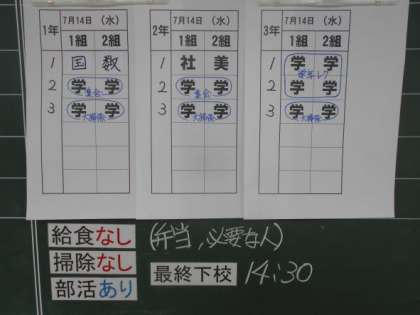 1年 7月14日 (水)
1組 2組
1 国 数
2 学 学
集会
3 学 学
大掃除
2年 7月14日 (水)
1組 2組
1 社 美
2 学 学
集会
3 学 学
大掃除
3年 7月14日 (水)
1組 2組
1 学 学
学年レク
2 学 学
3 学 学
大掃除
給食なし (弁当,必要な人)
掃除なし
最終下校 14:30
部活あり